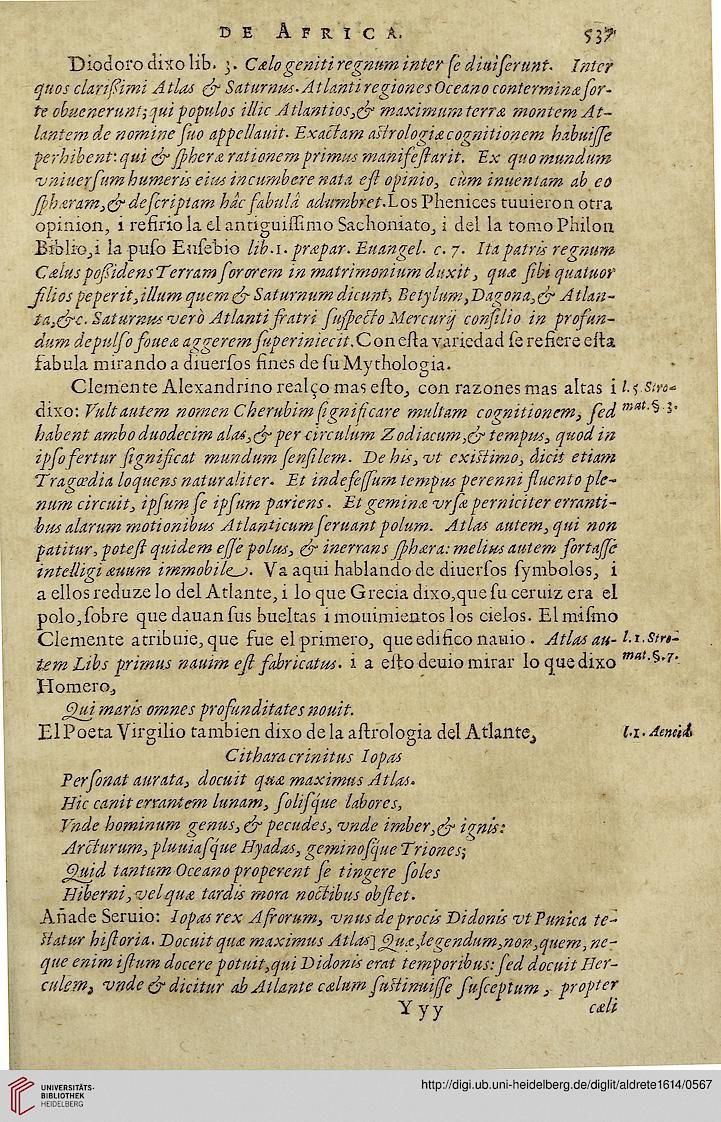 DE AFRICA. 537
Diodoro dixo lib. 3. Cælo geniti regnum inter ſe diuiſerunt. Inter
quos clarißimi Atlas & Saturnus. Atlanti regiones Oceano conterminæ ſor-
te obuenerunt; qui populos illic Atlantios, & maximum terræ montem At-
lantem de nomine ſuo appellauit. Exactam aſtrologiæ cognitionem habuiſſe
perhibent: qui & ſphæræ rationem primus manifeſtarit. Ex quo mundum
vniuerſum humeris eius incumbere nata eſt opinio, cùm inuentam ab eo
ſphæram, & deſcriptam hâc fabulâ adumbret. Los Phenices tuuieron otra
opinion, i refirio la el antiguiſſimo Sachoniato, i del la tomo Philon
Biblio, i la puſo Euſebio lib. 1. præpar. Euangel. c. 7. Ita patris regnum
Cælus poßidens Terram ſororem in matrimonium duxit, quæ ſibi quatuor
filios peperit, illum quem & Saturnum dicunt, Betylum, Dagona, & Atlan-
ta, &c. Saturnus verò Atlanti fratri ſuſpecto Mercurij conſilio in profun-
dum depulſo foueæ aggerem ſuperiniecit. Con eſta variedad ſe refiere eſta
fabula mirando a diuerſos fines de ſu Mythologia.
Clemente Alexandrino realço mas eſto, con razones mas altas i l. 5 Stro-
dixo: Vult autem nomen Cherubim ſignificare multam cognitionem, ſed mat. §. 3.
habent ambo duodecim alas, & per circulum Zodiacum, & tempus, quod in
ipſo fertur ſignificat mundum ſenſilem. De his, vt exiſtimo, dicit etiam
Tragœdia loquens naturaliter. Et indefeſſum tempus perenni fluento ple-
num circuit, ipſum ſe ipſum pariens. Et geminæ vrſæ perniciter erranti-
bus alarum motionibus Atlanticum ſeruant polum. Atlas autem, qui non
patitur, poteſt quidem eſſe polus, & inerrans ſphæra: melius autem fortaſſe
intelligi æuum immobile. Va aqui hablando de diuerſos ſymbolos, i
a ellos reduze lo del Atlante, i lo que Grecia dixo, que ſu ceruiz era el
polo, ſobre que dauan ſus bueltas i mouimientos los cielos. El miſmo
Clemente atribuie, que fue el primero, que edifico nauio. Atlas au- l. 1. Stro-
tem Libs primus nauim eſt fabricatus. i a eſto deuio mirar lo que dixo mat. §. 7.
Homero,
Qui maris omnes profunditates nouit.
El Poeta Virgilio tambien dixo de la aſtrologia del Atlante, l. 1. Aeneid.
Cithara crinitus Iopas
Perſonat aurata, docuit quæ maximus Atlas.
Hic canit errantem lunam, ſoliſque labores,
Vnde hominum genus, & pecudes, vnde imber, & ignis:
Arcturum, pluuiaſque Hyadas, geminoſque Triones;
Quid tantum Oceano properent ſe tingere ſoles
Hiberni, vel quæ tardis mora noctibus obſtet.
Añade Seruio: Iopas rex Afrorum, vnus de procis Didonis vt Punica te-
ſtatur hiſtoria. Docuit quæ maximus Atlas] Quæ, legendum, non, quem, ne-
que enim iſtum docere potuit, qui Didonis erat temporibus: ſed docuit Her-
culem, vnde & dicitur ab Atlante cælum ſuſtinuiſſe ſuſceptum, propter
Yyy cæli
UNIVERSITÄTS-
BIBLIOTHEK
HEIDELBERG
http://digi.ub.uni-heidelberg.de/diglit/aldrete1614/0567